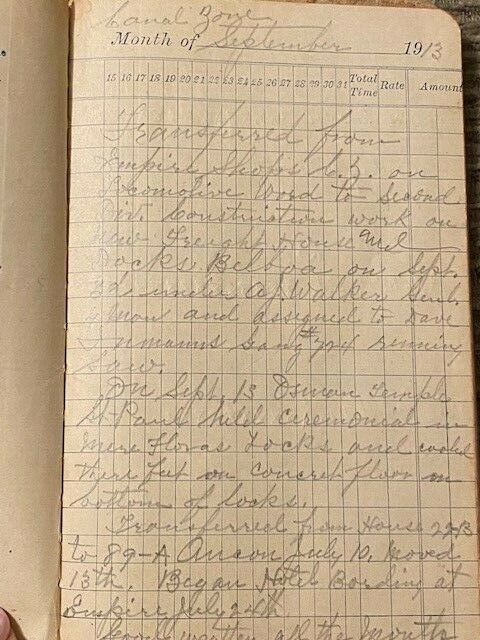 Canal Zone
Month of September 1913
15 16 17 18 19 20 21 22 23 24 25 26 27 28 29 30 31 Total Time Rate Amount
Transferred from
Empire Shops C.Z. on
Locomotive Word to Second
Div. Construction work on
new Freight House and
Docks Balboa on Sept.
3d, under A J Walker Genl.
and assigned to Dave
Inmanns Gang # 724 running
saw.
On Sept. 13 Osman Temple
St Paul held ceremonial in
Mira Floras Locks and cooled
there feet on concrete floor on
bottom of locks.
Transferred from House
to 89-A Ancon July 10. Moved
13th. Began Hotel Bording at
Empire July 24th
all the Month